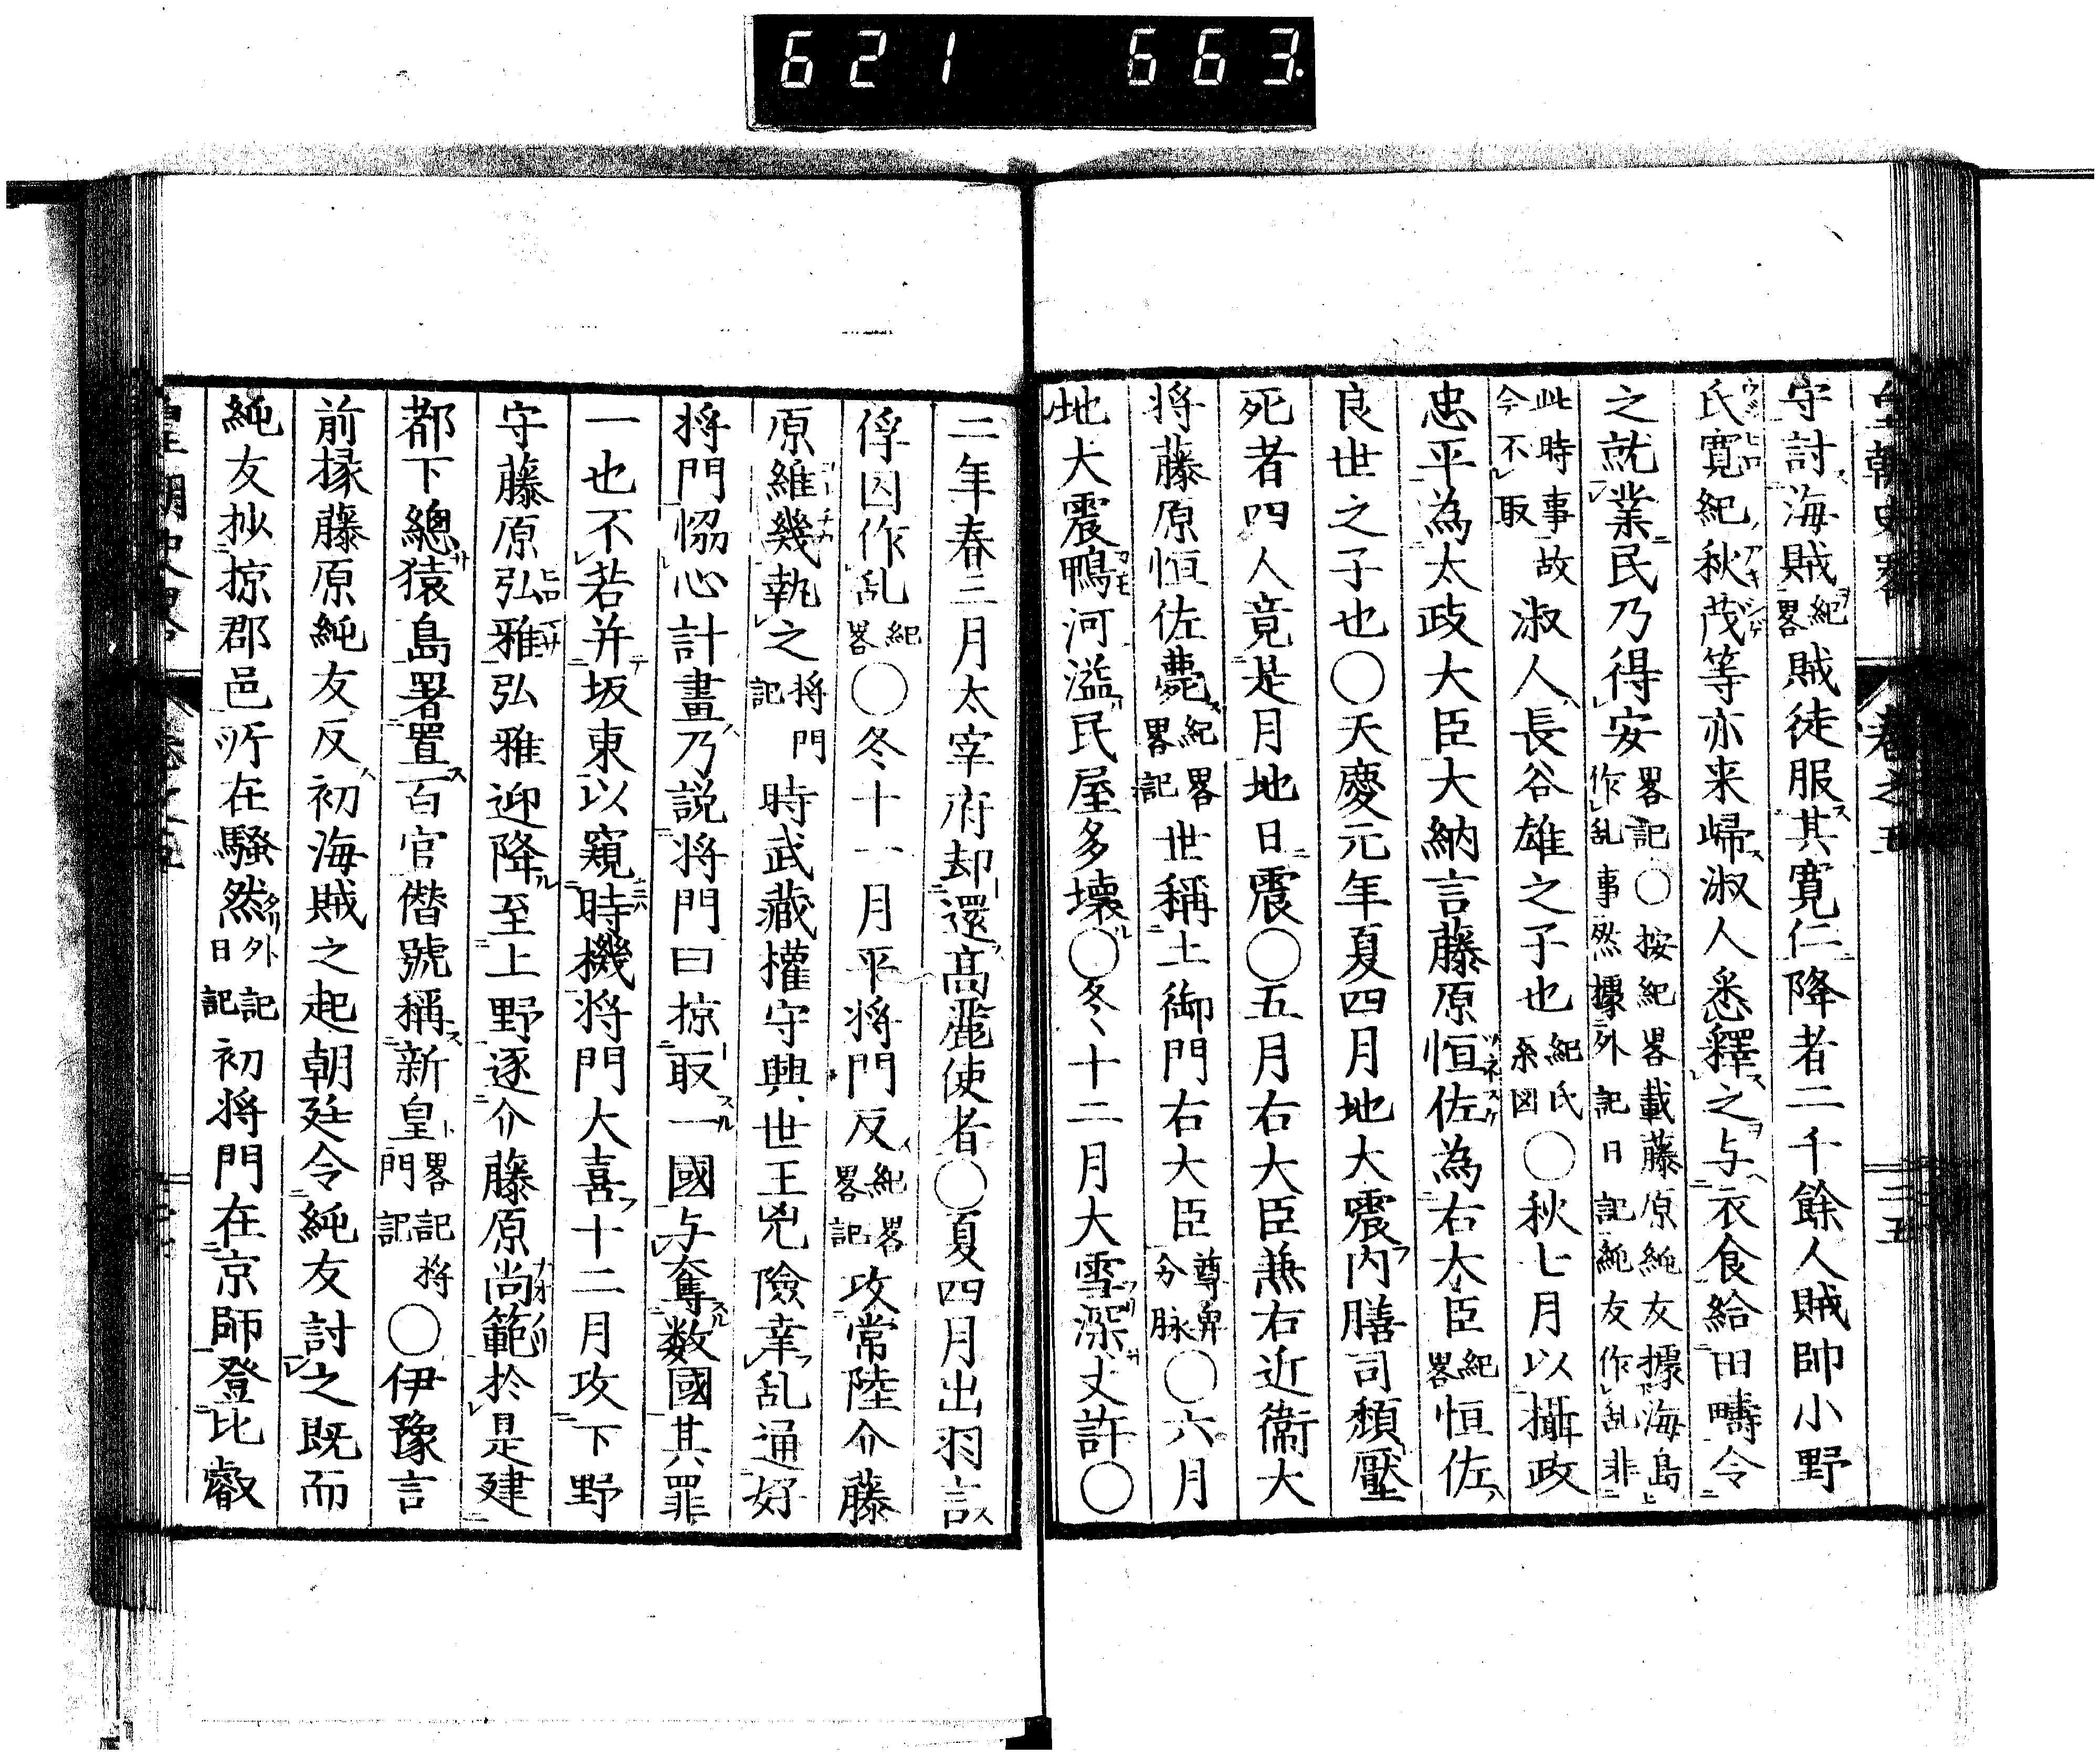 621 663
皇朝史略 卷之五 三五
守討海賊紀略賊徒服其寛仁降者二千餘人賊帥小野
氏寛紀秋茂等亦来歸淑人悉釋之与衣食給田疇令
之就業民乃得安略記〇按紀略載藤原純友據海島作乱事然據外記日記純友作乱非
此時事故今不取淑人長谷雄之子也紀氏系図〇秋七月以攝政
忠平為太政大臣大納言藤原恒佐為右大臣紀略恒佐
良世之子也〇天慶元年夏四月地大震内膳司頽壓
死者四人竟是月地日震〇五月右大臣兼右近衛大
将藤原恒佐薨紀略略記世稱土御門右大臣尊卑分脉〇六月
地大震鴨河溢民屋多壊〇冬十二月大雪深丈許〇
二年春三月太宰府却還髙麗使者〇夏四月出羽言
俘囚作乱紀略〇冬十一月平将門反紀略略記攻常陸介藤
原維幾執之将門記時武藏權守興世王兇險幸乱通好
将門恊心計畫乃説将門曰掠取一國与奪数國其罪
一也不若并坂東以窺時機将門大喜十二月攻下野
守藤原弘雅弘雅迎降至上野逐介藤原尚範於是建
都下總猿島署置百官僭號稱新皇略記将門記〇伊豫言
前掾藤原純友反初海賊之起朝廷令純友討之既而
純友抄掠郡邑所在騒然外記日記初将門在京師登比叡